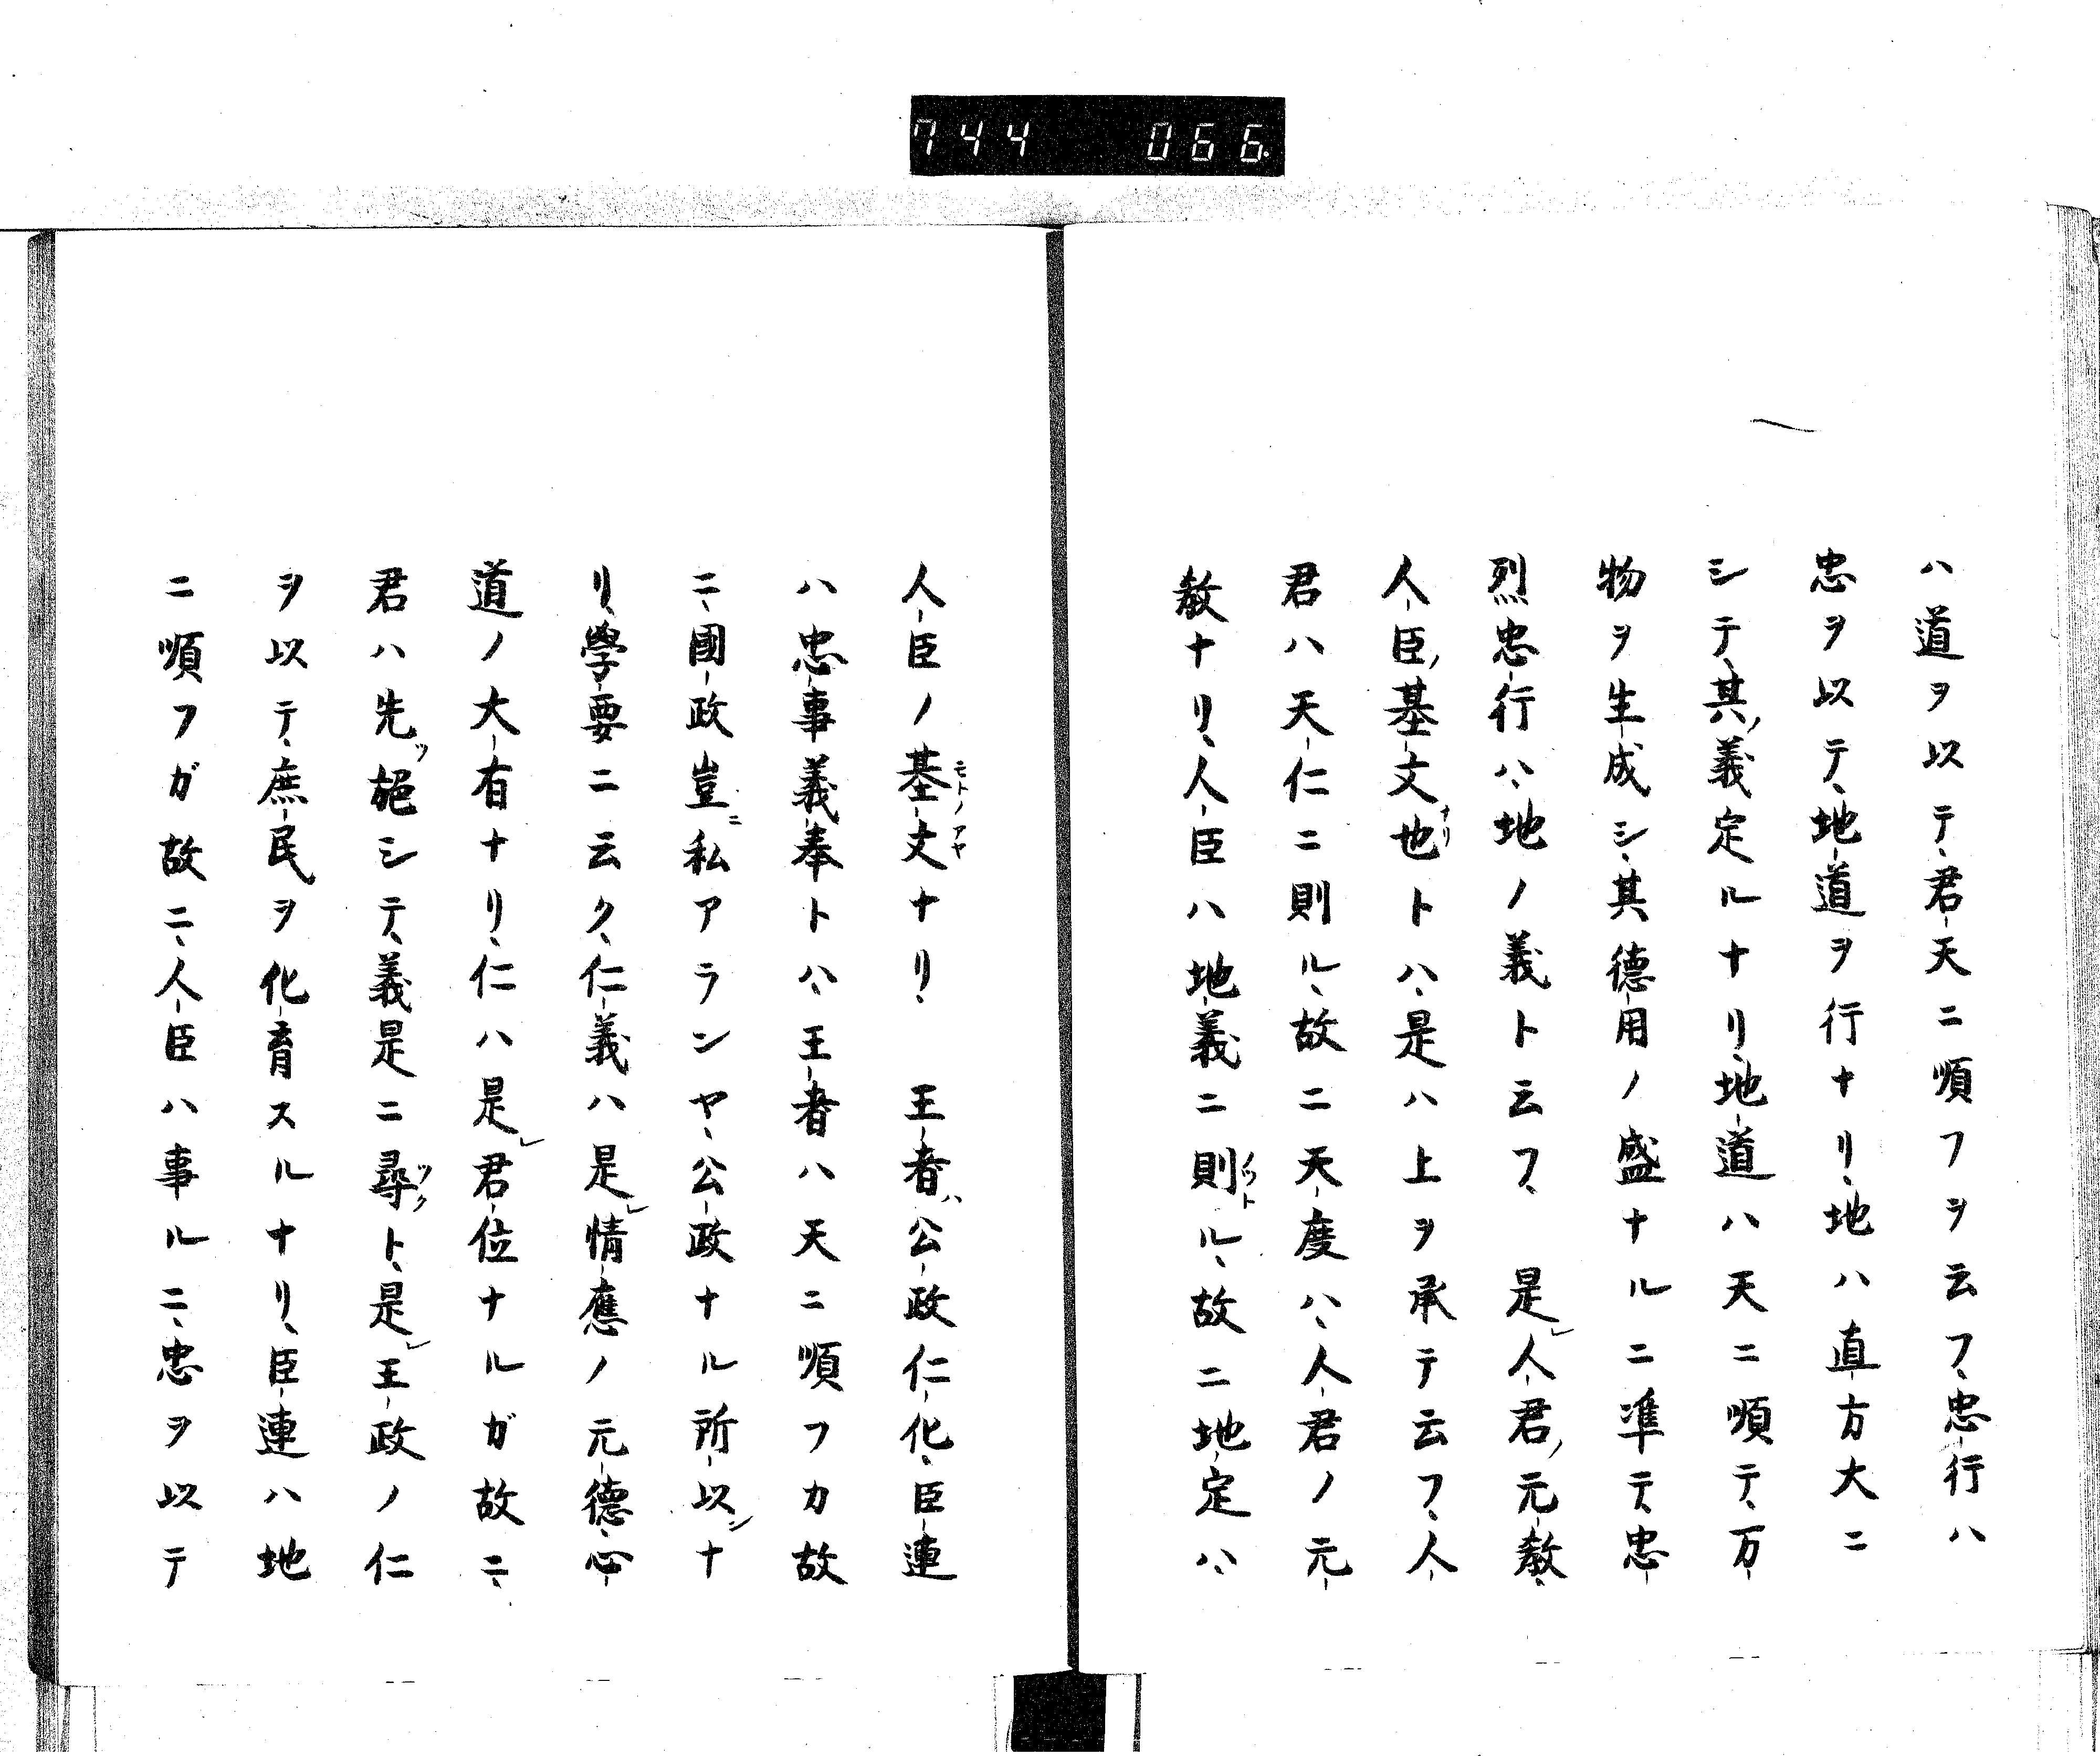 744 066
ハ道ヲ以テ、君天ニ順フヲ云フ、忠行ハ
忠ヲ以テ、地道ヲ行ナリ、地ハ直方大ニ
シテ、其ノ義定ルナリ、地道ハ天ニ順テ、万
物ヲ生成シ、其德用ノ盛ナルニ準テ、忠
烈忠行ハ、地ノ義ト云フ、 是レ人君ノ元教、
人臣ノ基文也ナリトハ、是ハ上ヲ承テ云フ、人
君ハ天仁ニ則ル、故ニ天度ハ、人君ノ元
教ナリ、人臣ハ地義ニ則ノツトル、故ニ地定ハ、
人臣ノ基文モトノアヤナリ、 王者ハ公政仁化、臣連
ハ忠事義奉トハ、王者ハ天ニ順フカ故
ニ、國政豈ニ私アランヤ、公政ナル所以シナ
リ、學要ニ云ク、仁義ハ是レ情應ノ元德、心
道ノ大有ナリ、仁ハ是レ君位ナルガ故ニ、
君ハ先ヅ施シテ、義是ニ尋ツクト、是レ王政ノ仁
ヲ以テ、庶民ヲ化育スルナリ、臣連ハ地
ニ順フガ故ニ、人臣ハ事ルニ、忠ヲ以テ